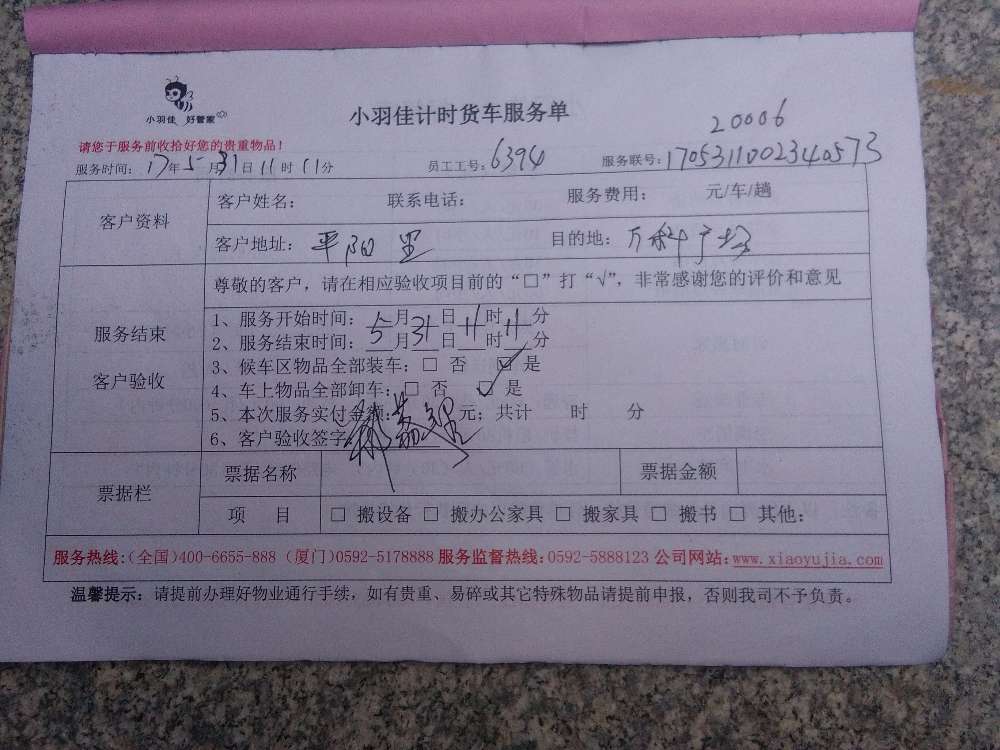 小羽佳 好管家
小羽佳计时货车服务单
20006
请您于服务前收拾好您的贵重物品！
服务时间：17年5月31日11时11分 员工工号：6394 服务联号：1705311002340573
客户资料
客户姓名： 联系电话： 服务费用： 元/车/趟
客户地址：平阳里 目的地：万科广场
服务结束
客户验收
尊敬的客户，请在相应验收项目前的“□”打“√”，非常感谢您的评价和意见
1、服务开始时间：5月31日11时11分
2、服务结束时间：月日时分
3、候车区物品全部装车：□ 否 ☑ 是
4、车上物品全部卸车：□ 否 ☑ 是
5、本次服务实付金额：元；共计 时 分
6、客户验收签字
票据栏
票据名称 票据金额
项 目 □ 搬设备 □ 搬办公家具 □ 搬家具 □ 搬书 □ 其他：
服务热线：(全国)400-6655-888（厦门)0592-5178888 服务监督热线：0592-5888123 公司网站：www.xiaoyujia.com
温馨提示：请提前办理好物业通行手续，如有贵重、易碎或其它特殊物品请提前申报，否则我司不予负责。